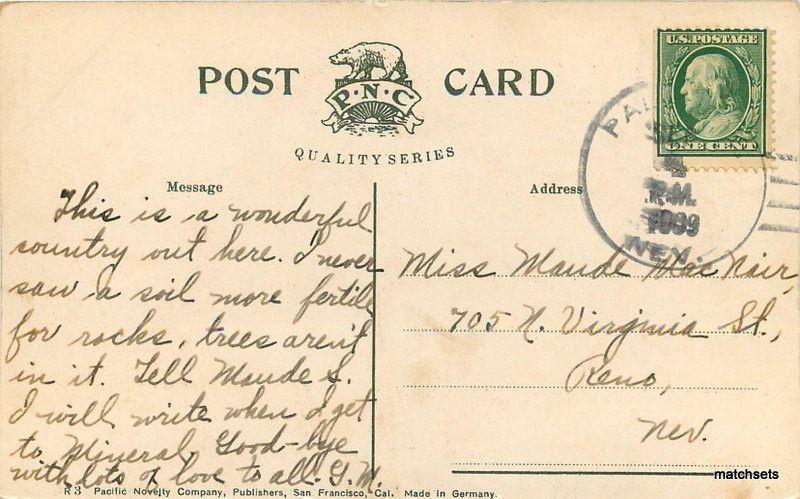 POST CARD
P·N·C
QUALITY SERIES
U.S. POSTAGE
ONE CENT
PA
SE
1
P.M.
1909
NEV.
Message
Address
This is a wonderful
country out here. I never
saw a soil more fertile
for rocks, trees aren't
in it. Tell Maude S.
I will write when I get
to Mineral. Good-bye
with lots of love to all. G.M.
Miss Maude MacNair,
705 N. Virginia St.,
Reno,
Nev.
R 3 Pacific Novelty Company, Publishers, San Francisco, Cal. Made in Germany.
matchsets